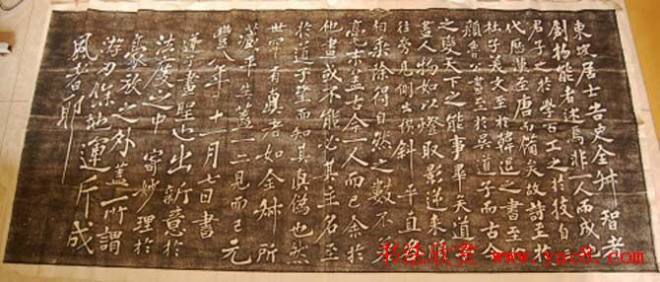 東坡居士告史全叔智者
創物能者述焉非一人而成
君子之於學百工之於技自三
代歷漢至唐而備矣故詩至於
杜子美文至於韓退之書至於
顏魯公畫至於吳道子而古今
之變天下之能事畢矣道子
畫人物如以燈取影逆来順
往旁見側出橫斜平直各
相乘除得自然之數不差
毫末盖古今一人而已余於
他畫或不能必其主名至
於道子望而知其真偽也然
世罕有真者如全叔所
藏平生盖一二見而已元
豐八年十一月七日書
道子畫聖也出新意於
法度之中寄妙理於
豪放之外盖所謂
游刃餘地運斤成
風者耶
www.yac8.com